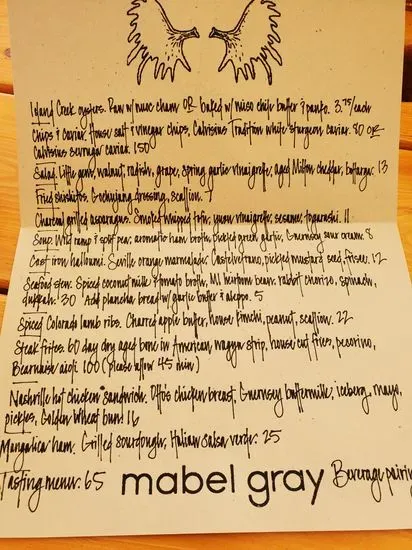 Island Creek oysters. Raw w/ nuoc cham OR baked w/ miso chili butter & panko. 3.75/each
Chips & caviar. House salt & vinegar chips, Calvisius Tradition white sturgeon caviar. 80 OR
Calvisius sevruga caviar. 150
Salad. Little gem, walnut, radish, grape, spring garlic vinaigrette, aged Milton cheddar, bottarga. 13
Fried shishitos. Gochujang dressing, scallion. 9
Charcoal grilled asparagus. Smoked whipped tofu, yuzu vinaigrette, sesame, togarashi. 11
Soup. Wild ramp & split pea, aromatic ham broth, pickled green garlic, Guernsey sour cream. 8
Cast iron halloumi. Seville orange marmelade, Castelvetrano, pickled mustard seed, frisee. 12
Seafood stew. Spiced coconut milk & tomato broth, MI heirloom bean, rabbit chorizo, spinach,
dukkah. 30 Add plancha bread w/ garlic butter & aleppo. 5
Spiced Colorado lamb ribs. Charred apple butter, house kimchi, peanut, scallion. 22
Steak frites. 60 day dry aged bone in American wagyu strip, house cut fries, pecorino,
Bearnaise aioli. 100 (please allow 45 min)
Nashville hot chicken sandwich. Otto's chicken breast, Guernsey buttermilk, iceberg, mayo,
pickles, Golden Wheat bun. 16
Mangalica ham. Grilled sourdough, Italian salsa verde. 25
Tasting menu. 65 mabel gray Beverage pairing